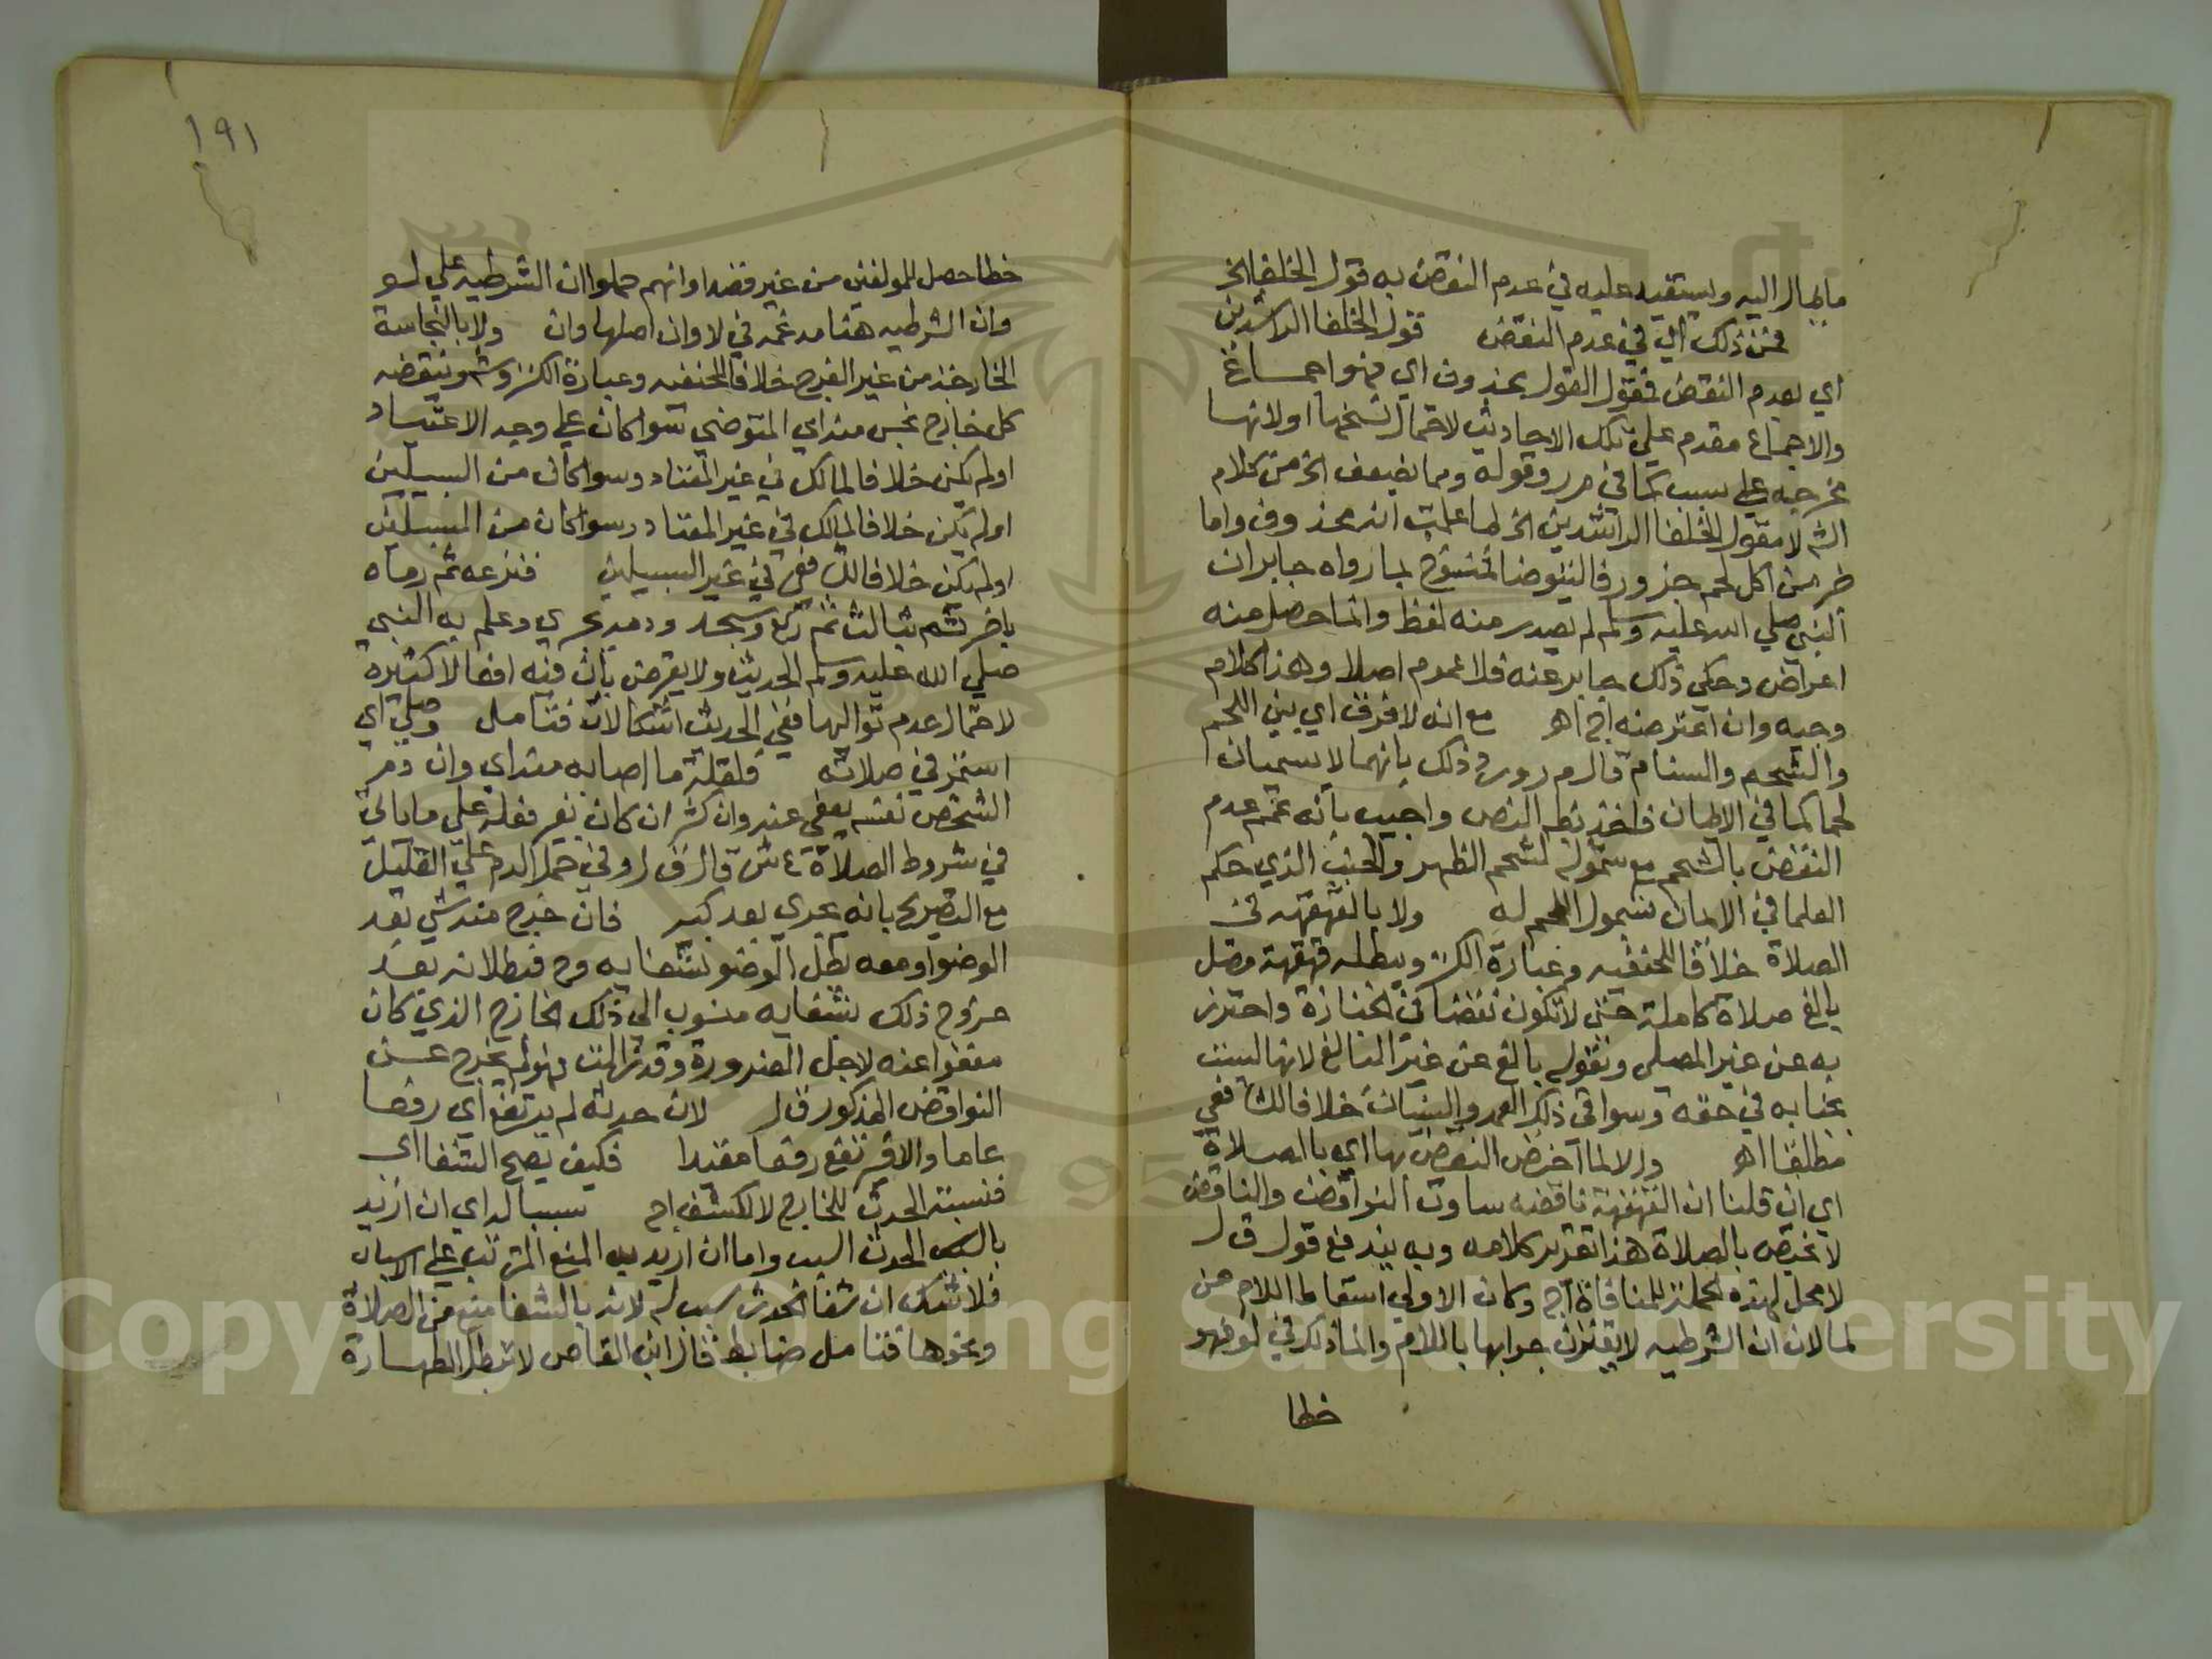 ما مال اليه ويستفيد عليه في عدم النقض به قول الخلفا الخ
فمن ذلك اي في عدم النقض قول الخلفا الراشدين
اي بعدم النقض فقول القول محذوف اي فهو اجماع
والاجماع مقدم علي تلك الاحاديث لاحتمال نسخها او لانها
خرجت علي سبب كما في م ر وقوله ومما يضعف الخ من كلام
الش لا مقول الخلفا الراشدين الخ لما علمت انه محذوف واما
خبر من اكل لحم جزور فاليتوضا فمنسوخ بما رواه جابر ان
النبي صلي الله عليه وسلم لم يصدر منه لفظ وانما حصل منه
اعراض وحكي ذلك جابر عنه فلا عموم اصلا وهذا كلام
وجيه وان اعترضه اج اهـ مع انه لا فرق اي بين اللحم
والشحم والسنام قال م ر ورد ذلك بانهما لا يسميان
لحما كما في الايمان فاخذ بظ النص واجيب بانه عمم عدم
النقض بالشحم مع شموله لشحم الظهر والجنب الذي حكم
العلما في الايمان بشمول اللحم له ولا بالقهقهه في
الصلاة خلافا للحنفيه وعبارة الكنز ويبطله قهقهة مصل
بالغ صلاة كاملة حتي لا تكون نقضا في الجنازة واحترز
به عن غير المصلي وبقوله بالغ عن غير البالغ لانها ليست
بجنايه في حقه وسوا في ذلك العمد والنسيان خلافا للشافعي
مطلقا اهـ والا لما اختص النقض بها اي بالصلاة
اي ان قلنا ان القهقهة ناقضه ساوت النواقض والناقض
لا يختص بالصلاة هذا تقرير كلامه وبه يندفع قول ق ل
لا محل لهذه الجملة للمنافاة اج وكان الاولي اسقاط اللام من
لما لان ان الشرطيه لا يقترن جوابها باللام وانما ذلك في لو فهو
خطا
١٩١
خطا حصل للمولفين من غير قصد او انهم حملوا ان الشرطيه علي لو
وان الشرطيه هنا مدغمه في لا وان اصلها وان ولا بالنجاسة
الخارجة من غير الفرج خلافا للحنفيه وعبارة الكنز وشر وينقضه
كل خارج نجس منه اي المتوضي سوا كان علي وجه الاعتياد
او لم يكن خلافا لمالك في غير المعتاد وسوا كان من السبيلين
او لم يكن خلافا لمالك في غير المعتاد وسوا كان من السبيلين
او لم يكن خلافا للشافعي في غير السبيلين فنزعه ثم رماه
باخر ثم بثالث ثم ركع وسجد ودمه يجري وعلم به النبي
صلي الله عليه وسلم الحديث ولا يعترض بان فيه افعالا كثيرة
لاحتمال عدم تواليها ففي الحديث اشكالان فتامل وصلي اي
استمر في صلاته فلقلة ما اصابه منه اي وان دم
الشخص نفسه يعفي عنه وان كثر ان كان بغير فعله علي ما ياتي
في شروط الصلاة ع ش قال ق ل وفي حمل الدم علي القليل
مع التصريح بانه يجري بعد كبير فان خرج منه شي بعد
الوضو او معه بطل الوضو بشفايه وح فبطلانه بعد
خروج ذلك بشفايه منسوب الي ذلك الخارج الذي كان
معفوا عنه لاجل الضرورة وقد زالت فهو لم يخرج عن
النواقض المذكور ق ل لان حدثه لم يرتفع اي رفعا
عاما والا فيرتفع رفعا مقيدا فكيف يصح الشفا اي
فنسبته الحدث للخارج لا للشفا اج سببا له اي ان اريد
بالسبب الحدث السبب واما ان اريد به المنع المترتب علي الاسباب
فلا شك ان شفا الحدث سبب له لانه بالشفا منع من الصلاة
ونحوها فتامل ضابط قال ابن القاص لا تبطل الطهارة